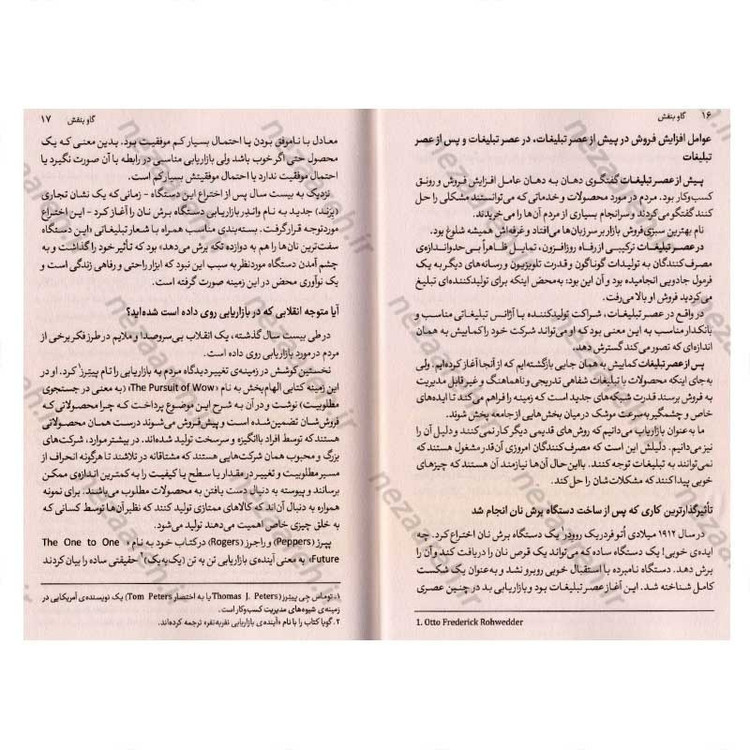 ۱۶ گاو بنفش
عوامل افزایش فروش در پیش از عصر تبلیغات، در عصر تبلیغات و پس از عصر
تبلیغات
پیش از عصر تبلیغات گفتگوی دهان به دهان عامل افزایش فروش و رونق
کسب‌وکار بود. مردم در مورد محصولات و خدماتی که می‌توانستند مشکلی را حل
کنند گفتگو می‌کردند و سرانجام بسیاری از مردم آن‌ها را می‌خریدند.
نام بهترین سبزی‌فروش بازار بر سر زبان‌ها می‌افتاد و غرفه‌اش همیشه شلوغ بود.
در عصر تبلیغات ترکیبی از رفاه روزافزون، تمایل ظاهراً بی‌حدواندازه‌ی
مصرف‌کنندگان به تولیدات گوناگون و قدرت تلویزیون و رسانه‌های دیگر به یک
فرمول جادویی انجامیده بود و آن این بود: به‌محض اینکه برای تولیدکننده‌ای تبلیغ
می‌کردید فروش او بالا می‌رفت.
در واقع در عصر تبلیغات، شراکت تولیدکننده با آژانس تبلیغاتی مناسب و
بانکدار مناسب به این معنی بود که او می‌تواند شرکت خود را کمابیش به همان
اندازه‌ای که تصور می‌کند گسترش دهد.
پس از عصر تبلیغات کمابیش به همان جایی بازگشته‌ایم که از آنجا آغاز کرده‌ایم. ولی
به جای اینکه محصولات با تبلیغات شفاهی تدریجی و ناهماهنگ و غیر قابل مدیریت
به فروش برسند قدرت شبکه‌های جدید است که زمینه را فراهم می‌کند تا ایده‌های
خاص و چشمگیر به‌سرعت موشک در میان بخش‌هایی از جامعه پخش شوند.
ما به عنوان بازاریاب می‌دانیم که روش‌های قدیمی دیگر کار نمی‌کنند و دلیل آن را
نیز می‌دانیم. دلیلش این است که مصرف‌کنندگان امروزی آن‌قدر مشغول هستند که
نمی‌توانند به تبلیغات توجه کنند. بااین‌حال آن‌ها نیازمند آن هستند که چیزهای
خوبی پیدا کنند که مشکلات‌شان را حل کند.
تأثیرگذارترین کاری که پس از ساخت دستگاه برش نان انجام شد
در سال ۱۹۱۲ میلادی اُتو فردریک روودِر یک دستگاه برش نان اختراع کرد. چه
ایده‌ی خوبی! یک دستگاه ساده که می‌تواند یک قرص نان را دریافت کند و آن را
برش دهد. دستگاه نامبرده با استقبال خوبی روبرو نشد و به‌عنوان یک شکست
کامل شناخته شد. این آغاز عصر تبلیغات بود و بازاریابی بد در چنین عصری
1. Otto Frederick Rohwedder
گاو بنفش ۱۷
معادل با ناموفق بودن یا احتمال بسیار کم موفقیت بود. بدین معنی که یک
محصول حتی اگر خوب باشد ولی بازاریابی مناسبی در رابطه با آن صورت نگیرد یا
احتمال موفقیت ندارد یا احتمال موفقیتش بسیار کم است.
نزدیک به بیست سال پس از اختراع این دستگاه - زمانی که یک نشان تجاری
(بِرَند) جدید به نام واندِر بازاریابی دستگاه برش نان را آغاز کرد - این اختراع
موردتوجه قرار گرفت. بسته‌بندی مناسب همراه با شعار تبلیغاتی «این دستگاه
سفت‌ترین نان‌ها را هم به دوازده تکه برش می‌دهد» بود که تأثیر خود را گذاشت و به
چشم آمدن دستگاه موردنظر به سبب این نبود که ابزار راحتی و رفاهی زندگی است و
یک نوآوری محض در این زمینه صورت گرفته است.
آیا متوجه انقلابی که در بازاریابی روی داده است شده‌اید؟
در طی بیست سال گذشته، یک انقلاب بی‌سروصدا و ملایم در طرز فکر برخی از
مردم در مورد بازاریابی روی داده است.
نخستین کوشش در زمینه‌ی تغییر دیدگاه مردم به بازاریابی را تام پیترز۱ کرد. او در
این زمینه کتابی الهام‌بخش به نام «The Pursuit of Wow» (به معنی در جستجوی
مطلوبیت) نوشت و در آن به شرح این موضوع پرداخت که چرا محصولاتی که
فروش‌شان تضمین شده است و پیش‌فروش می‌شوند درست همان محصولاتی
هستند که توسط افراد باانگیزه و سرسخت تولید شده‌اند. در بیشتر موارد، شرکت‌های
بزرگ و محبوب همان شرکت‌هایی هستند که مشتاقانه در تلاشند تا هرگونه انحراف از
مسیر مطلوبیت و تغییر در مقدار یا سطح یا کیفیت را به کمترین اندازه‌ی ممکن
برسانند و پیوسته به دنبال دست یافتن به محصولات مطلوب می‌باشند. برای نمونه
همواره به دنبال آن‌اند که کالاهای ممتازی تولید کنند که نظیر آن‌ها توسط کسانی که
به خلق چیزی خاص اهمیت می‌دهند تولید می‌شود.
پپرز (Peppers) و راجرز (Rogers) در کتاب خود به نام «The One to One
Future» به معنی آینده‌ی بازاریابی تن به تن (یک‌به‌یک)۲ حقیقتی ساده را بیان کردند
۱. توماس جی پیترز (Thomas J. Peters یا به اختصار Tom Peters) یک نویسنده‌ی آمریکایی در
زمینه‌ی شیوه‌های مدیریت کسب‌وکار است.
۲. گویا کتاب را با نام «آینده‌ی بازاریابی نفربه‌نفر» ترجمه کرده‌اند.
nezaarah.ir